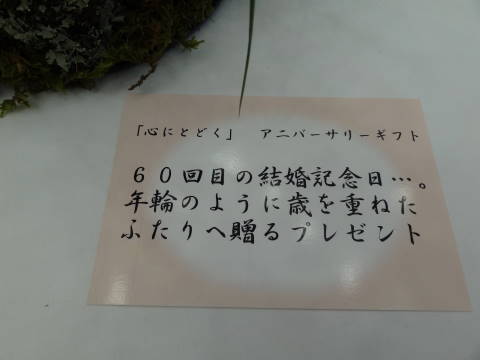 「心にとどく」 アニバーサリーギフト
60回目の結婚記念日…。
年輪のように歳を重ねた
ふたりへ贈るプレゼント